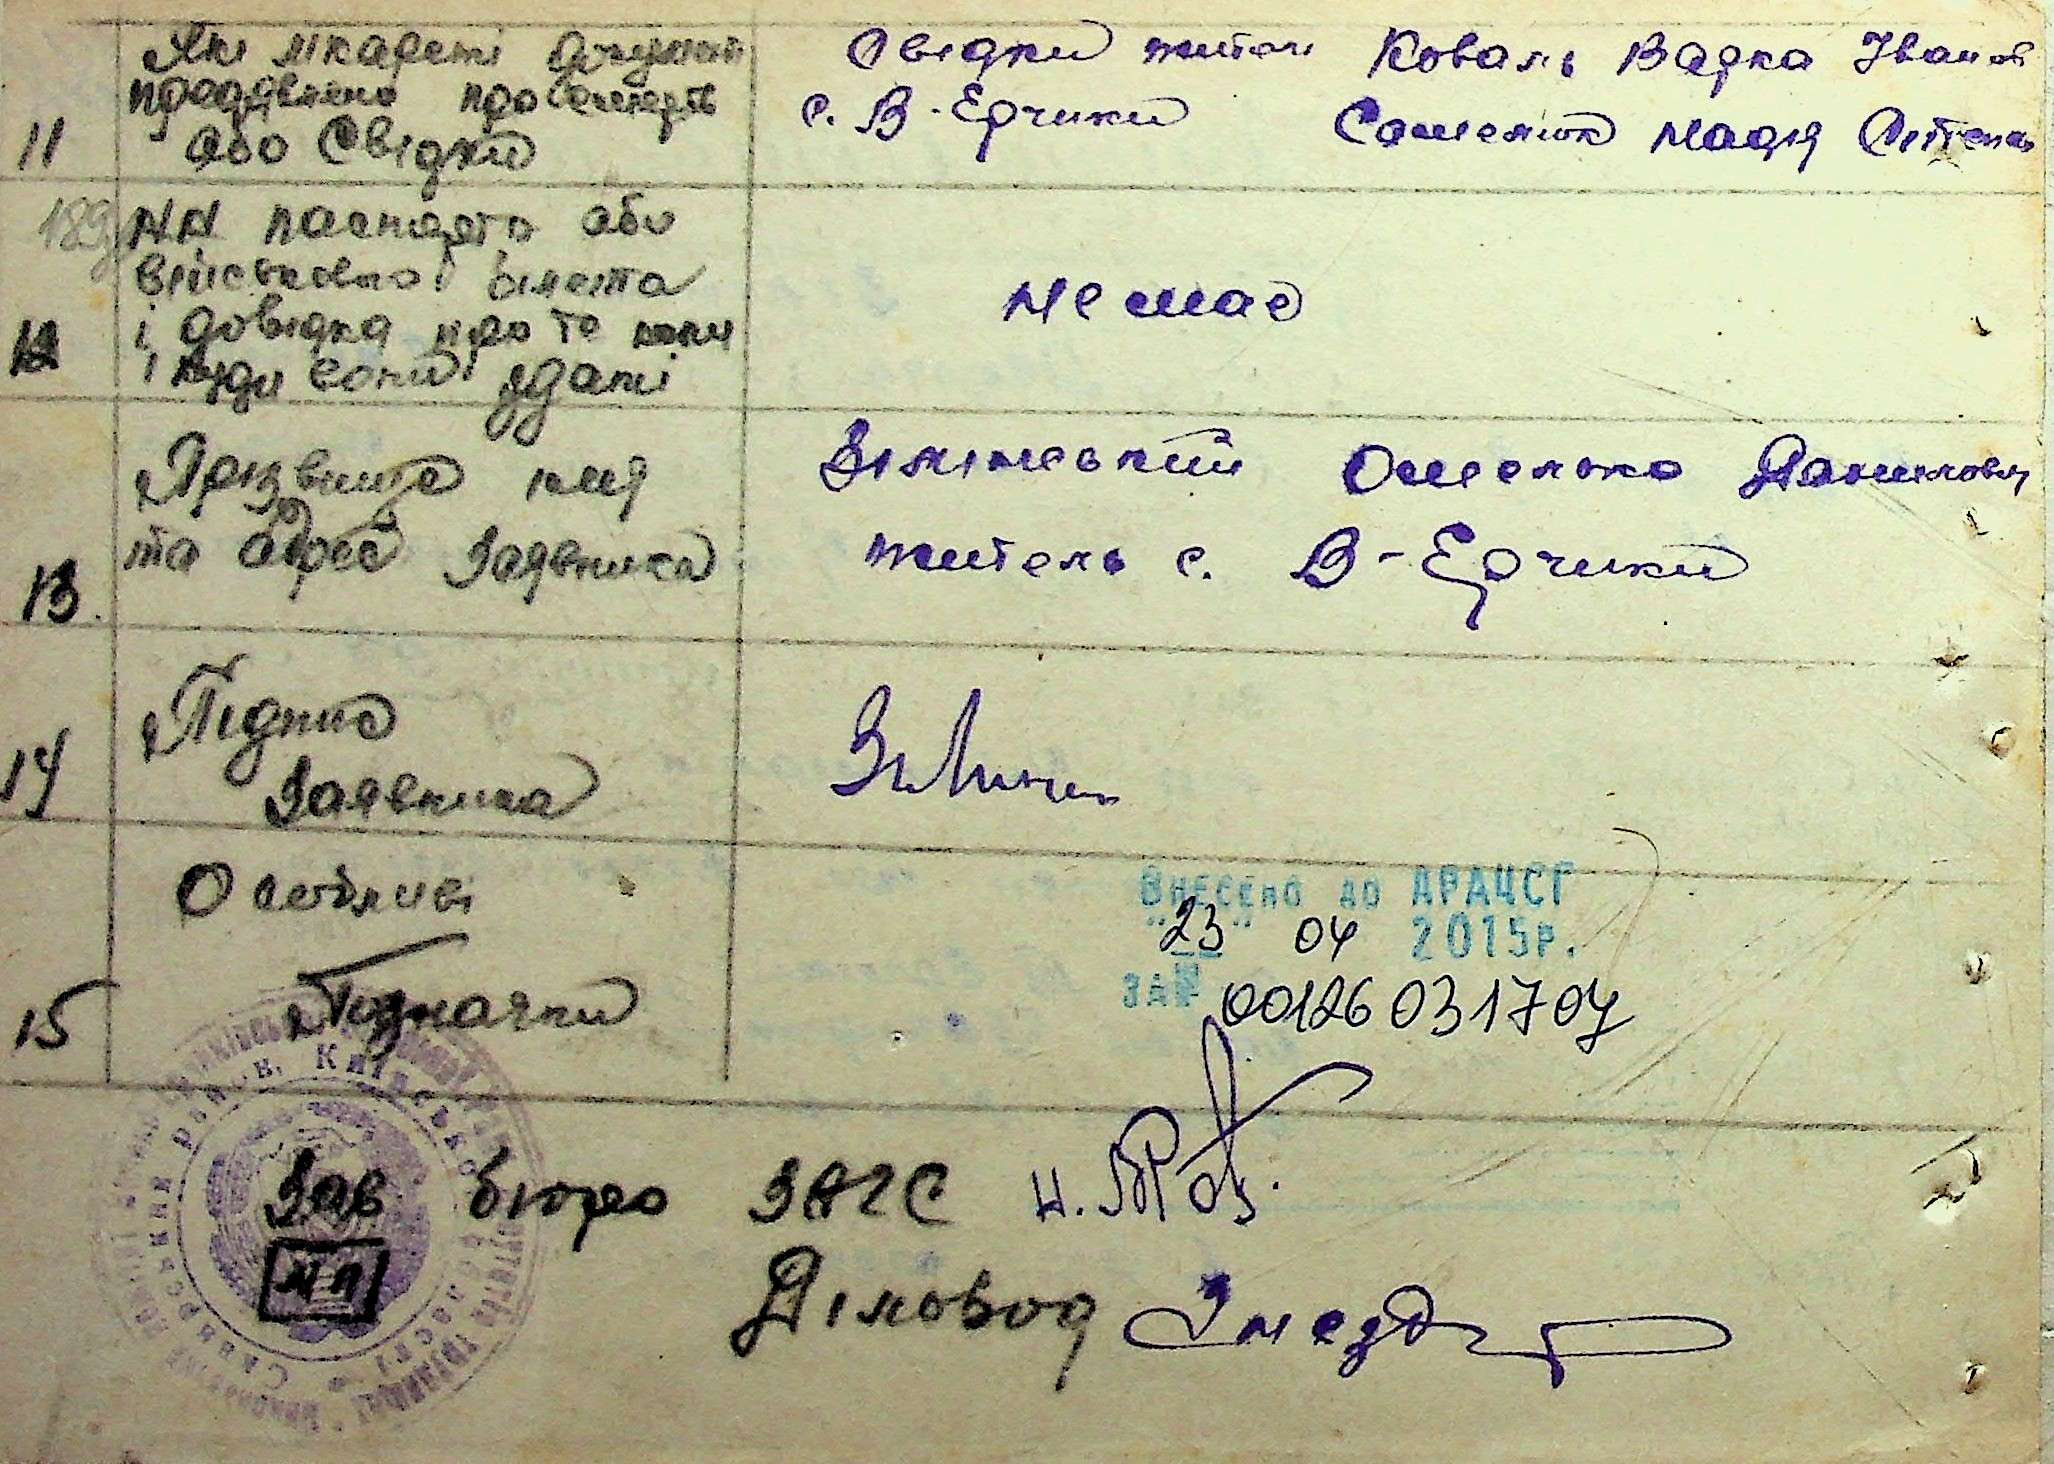 11
Які лікарські документи
преддявлено про смерть
або Свідки
Свідки жителі Коваль Варка Іванов
с. В-Ерчики Саменюк Надя Степан
189
12
NN паспорта або
військової білета
і довідка про те коли
і куди вони здані
не має
13.
Прізвище імя
та адрес Заявника
Зілінський Омелько Данилович
житель с. В-Ерчики
14
Підпис
Заявника
Зілинс
15
Особливі
Позначки
Внесено до ДРАЦСГ
"23" 04 2015р.
ЗА № 00126031704
Зав бюро ЗАГС
МП
Діловод